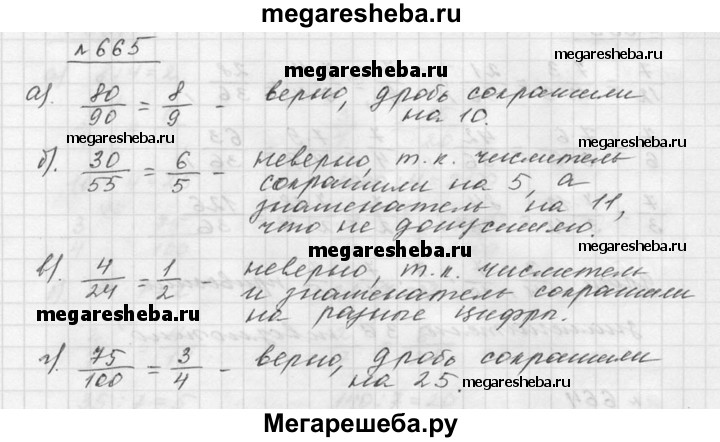 megaresheba.ru
№665
megaresheba.ru
а). 80/90 = 8/9 - верно, дробь сократили
на 10.
megaresheba.ru
б). 30/55 = 6/5 - неверно, т.к. числитель
сократили на 5, а
знаменатель на 11,
что не допустимо.
megaresheba.ru
в). 4/24 = 1/2 - неверно, т.к. числитель
и знаменатель сократили
megaresheba.ru
на разные цифры.
г). 75/100 = 3/4 - верно, дробь сократили
на 25.
megaresheba.ru
Мегарешеба.ру